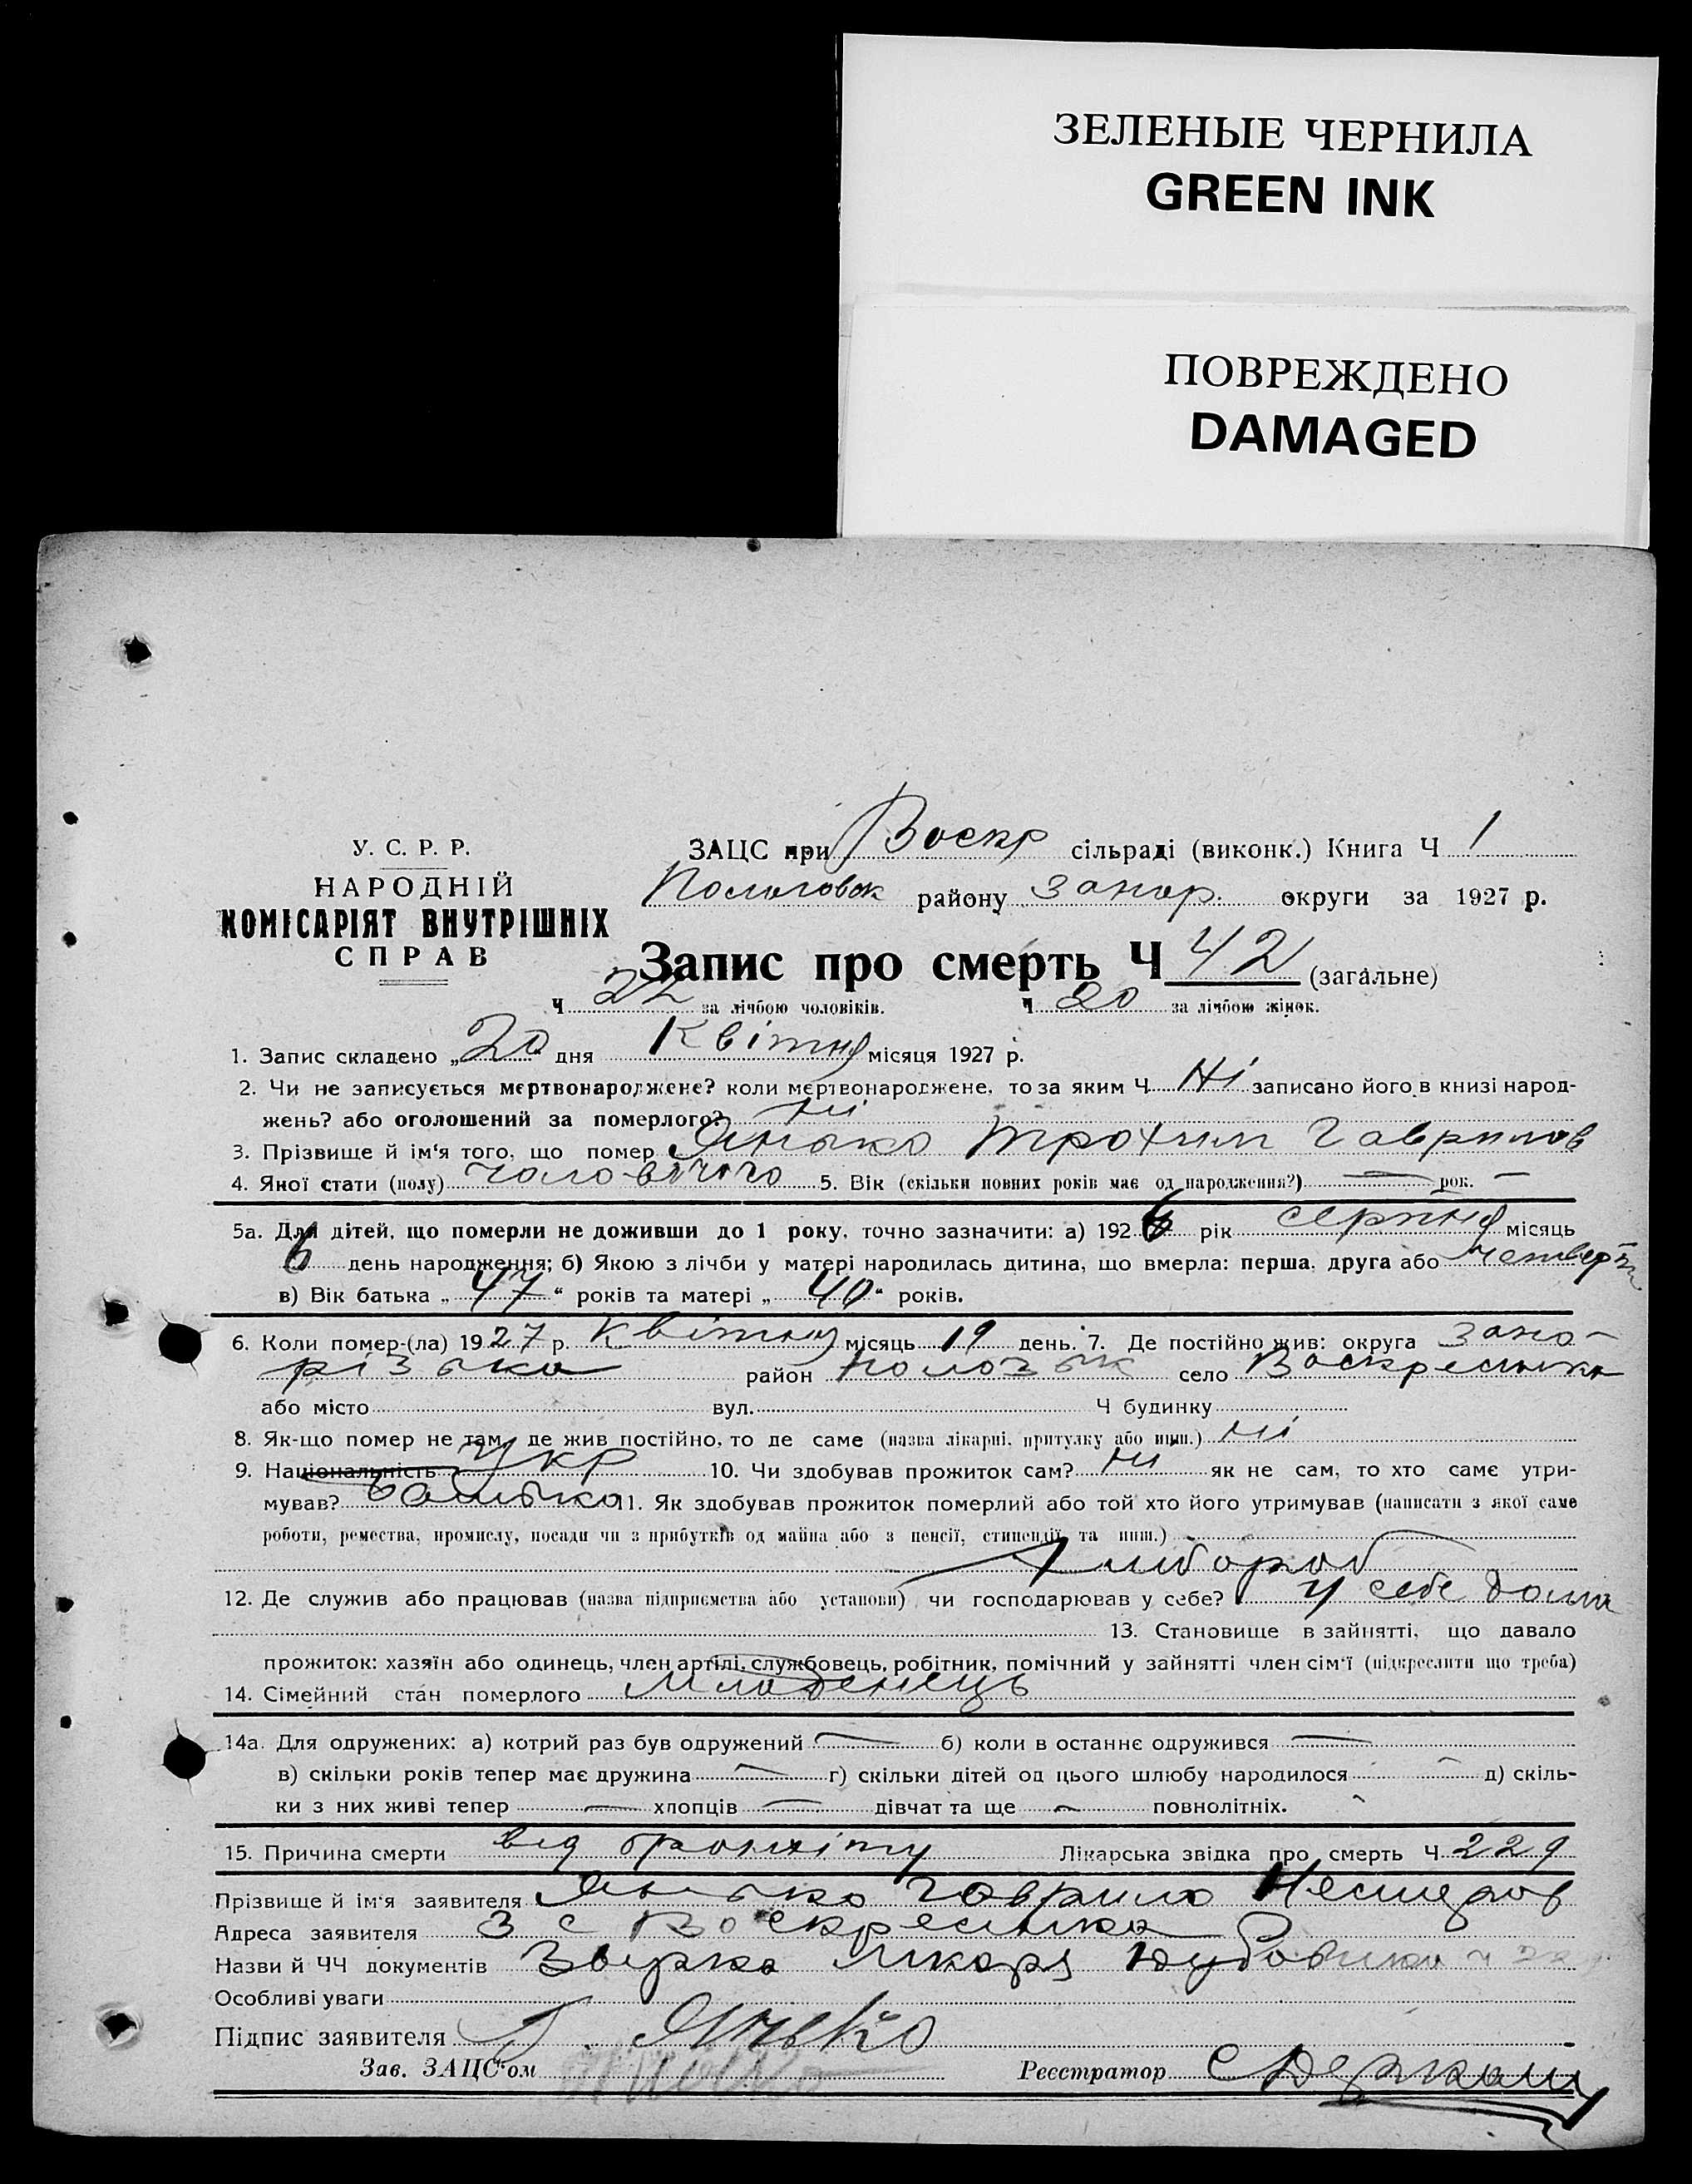 ЗЕЛЕНЫЕ ЧЕРНИЛА
GREEN INK
ПОВРЕЖДЕНО
DAMAGED
У. С. Р. Р.
НАРОДНІЙ
КОМІСАРІЯТ ВНУТРІШНІХ
СПРАВ
ЗАЦС при Воскр сільраді (виконк.) Книга Ч 1
Пологовск району Запор. округи за 1927 р.
Запис про смерть Ч 42 (загальне)
Ч 22 за лічбою чоловіків. Ч 20 за лічбою жінок.
1. Запис складено „20" дня Квітня місяця 1927 р.
2. Чи не записується мертвонароджене? коли мертвонароджене, то за яким Ч Ні записано його в книзі народ-
жень? або оголошений за померлого? Ні
3. Прізвище й ім'я того, що помер Янько Трохим Гаврилов
4. Якої стати (полу) чоловічого 5. Вік (скільки повних років має од народження?) — рок. —
5а. Для дітей, що померли не доживши до 1 року, точно зазначити: а) 1926 рік серпня місяць
6 день народження; б) Якою з лічби у матері народилась дитина, що вмерла: перша, друга або
в) Вік батька „47" років та матері „40" років.
6. Коли помер-(ла) 1927 р. Квітня місяць 19 день. 7. Де постійно жив: округа Запо-
різька район село Воскресенка
або місто вул. Ч будинку
8. Як-що помер не там, де жив постійно, то де саме (назва лікарні, притулку або инш.) Ні
9. Національність Укр 10. Чи здобував прожиток сам? Ні як не сам, то хто саме утри-
мував? батько 11. Як здобував прожиток померлий або той хто його утримував (написати з якої саме
роботи, ремества, промислу, посади чи з прибутків од майна або з пенсії, стипендії та инш.)
Хлібороб
12. Де служив або працював (назва підприємства або установи) чи господарював у себе? У себе дома
13. Становище в зайнятті, що давало
прожиток: хазяїн або одинець, член артілі, службовець, робітник, помічний у зайнятті член сім'ї (підкреслити що треба)
14. Сімейний стан померлого Младенець
14а. Для одружених: а) котрий раз був одружений — б) коли в останнє одружився —
в) скільки років тепер має дружина — г) скільки дітей од цього шлюбу народилося — д) скіль-
ки з них живі тепер — хлопців — дівчат та ще — повнолітніх.
15. Причина смерти від бронхіту Лікарська звідка про смерть Ч 229
Прізвище й ім'я заявителя Янько Гаврило Нестеров
Адреса заявителя З с Воскресенка
Назви й ЧЧ документів лікаря
Особливі уваги
Підпис заявителя Г. Янько
Зав. ЗАЦС'ом Реєстратор